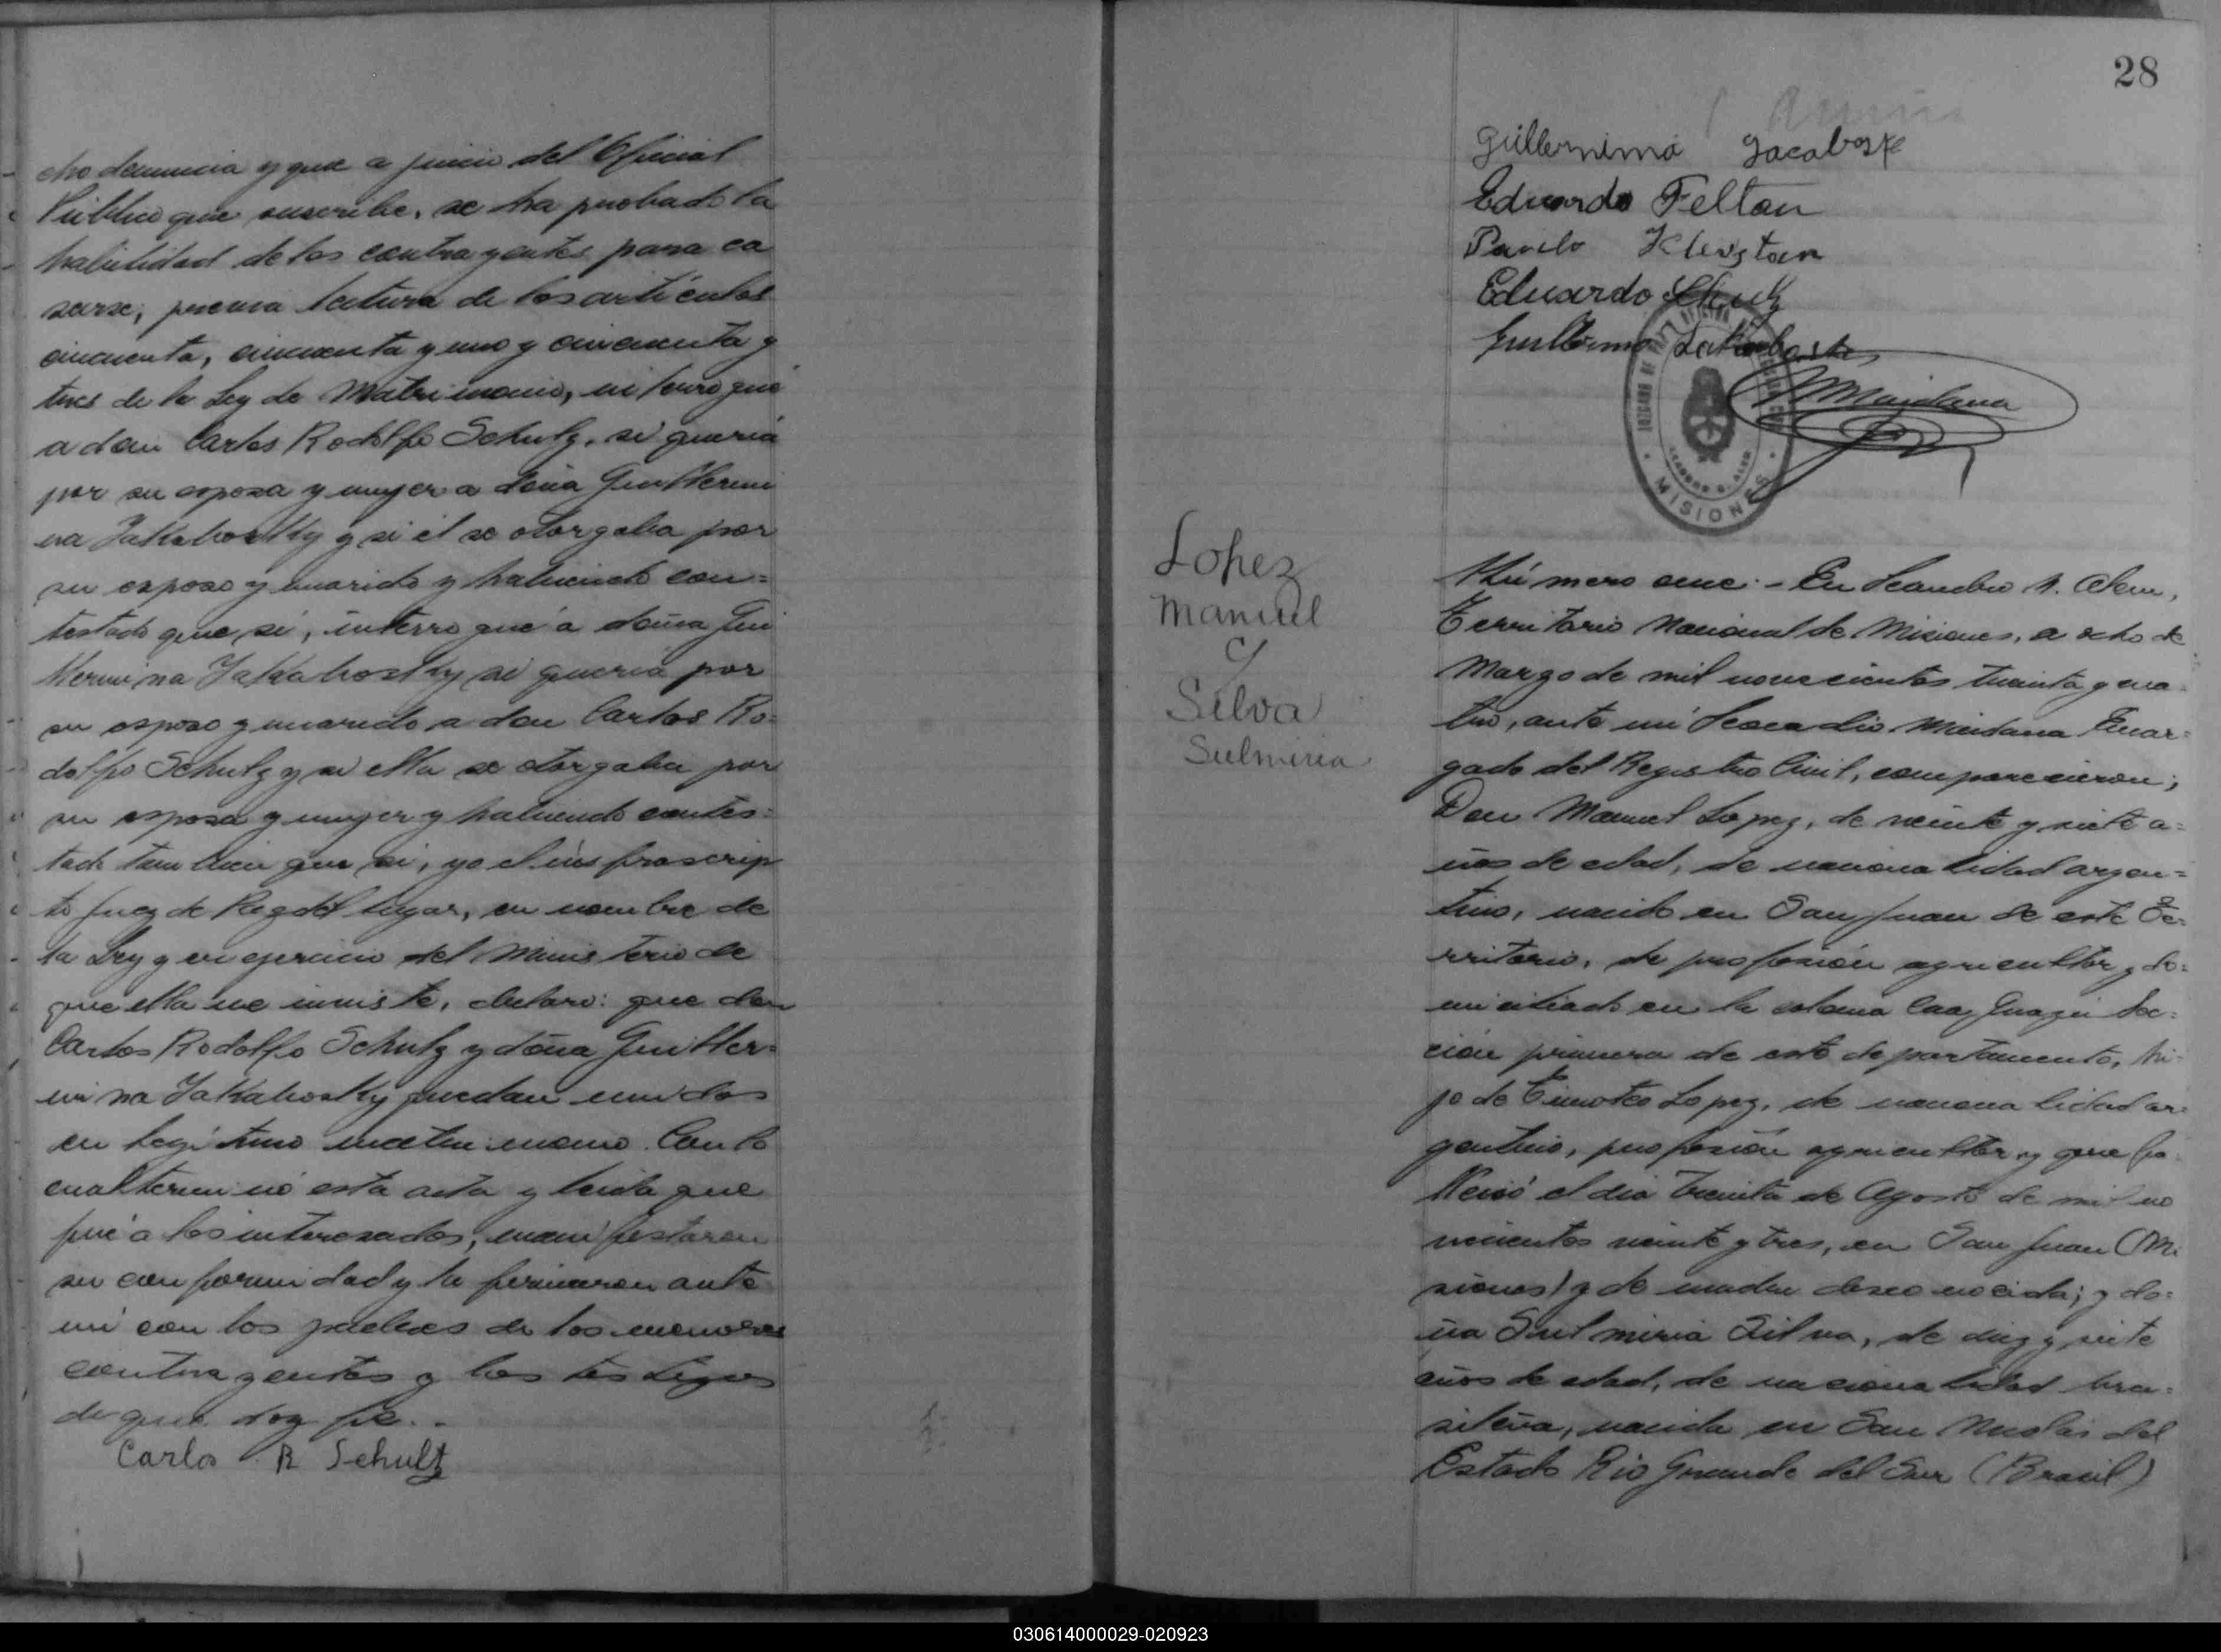 cho denuncia y que a juicio del Oficial
Público que suscribe, se ha probado la
habilidad de los contrayentes para ca
sarse; previa lectura de los artículos
cincuenta, cincuenta y uno y cincuenta y
tres de la Ley de Matrimonio, interrogué
a don Carlos Rodolfo Schulz, si quería
por su esposa y mujer a doña Guillermi
na Jakabosky y si él se otorgaba por
su esposo y marido y habiendo con=
testado que sí, interrogué a doña Gui
llermina Jakabosky si quería por
su esposo y marido a don Carlos Ro=
dolfo Schulz y si ella se otorgaba por
su esposa y mujer y habiendo contes=
tado tambien que si, yo el infrascrip
to Juez de Paz del lugar, en nombre de
la Ley y en ejercicio del Ministerio de
que ella me inviste, declaro: que don
Carlos Rodolfo Schulz y doña Guiller=
mina Jakabosky quedan unidos
en legítimo matrimonio. Con lo
cual terminó esta acta y leida que
fué a los interesados, manifestaron
su conformidad y la firmaron ante
mi con los padres de los menores
contrayentes y los testigos
de que doy fé. -
Carlos R Schultz
28
Guillermima Jacaboske
Eduardo Feltan
Paulo
Eduardo
Guillermo
MMaidana
JUZGADO DE PAZ
LEANDRO N. ALEM
MISIONES
Lopez
Manuel
c/
Silva
Sulmira
Número once: - En Leandro N. Alem,
Territorio Nacional de Misiones, a ocho de
Marzo de mil novecientos treinta y cua
tro, ante mí Leocadio Maidana Encar=
gado del Registro Civil, comparecieron;
Don Manuel Lopez, de veinte y siete a=
ños de edad, de nacionalidad argen=
tino, nacido en San Juan de este Te=
rritorio, de profesión agricultor y do=
miciliado en la colonia Caa Guazú Sec=
ción primera de este departamento, hi=
jo de Timoteo Lopez, de nacionalidad ar=
gentino, profesión agricultor y que fa
lleció el día treinta de Agosto de mil no
vecientos veinte y tres, en San Juan (Mi
siones) y de madre desconocida; y do=
ña Sulmira Silva, de diez y siete
años de edad, de nacionalidad bra=
sileña, nacida en San Nicolás del
Estado Rio Grande del Sur (Brasil)